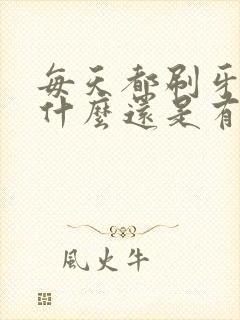 每天都刷牙
什麼還是有
風火牛